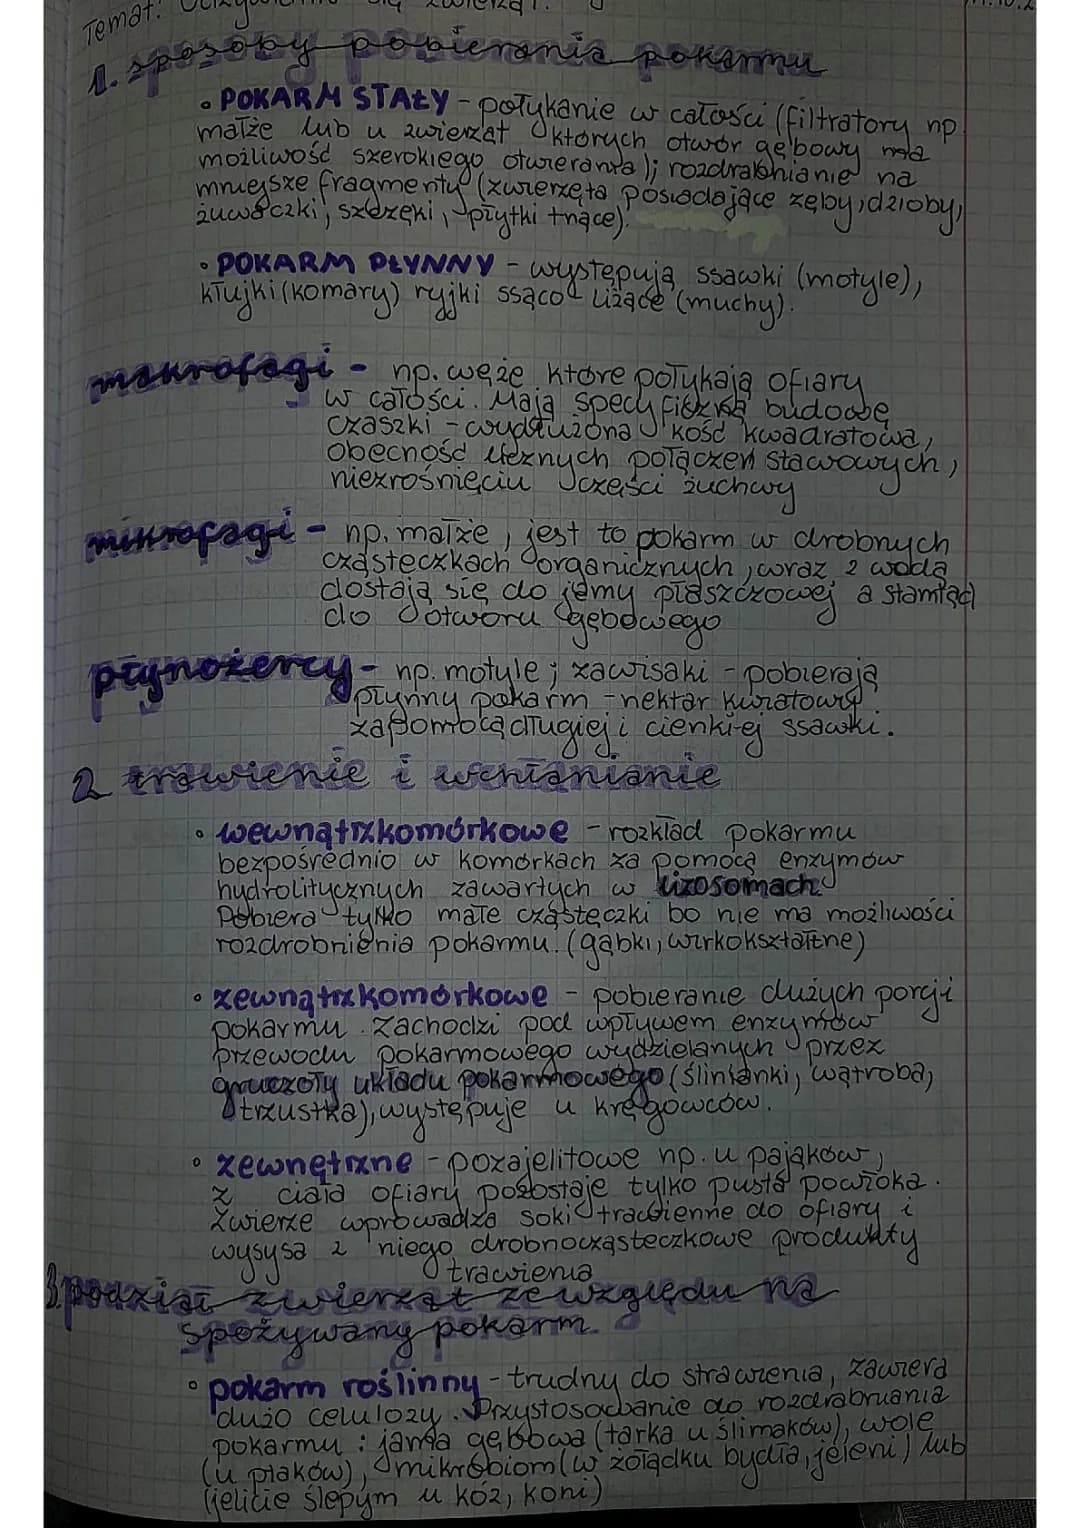 Temat: Odżywianie się zwierząt.
1. sposoby pobierania pokarmu
• POKARM STAŁY - połykanie w całości (filtratory np.
małże lub u zwierząt których otwór gębowy ma
możliwość szerokiego otwierania); rozdrabnianie na
mniejsze fragmenty (zwierzęta posiadające zęby, dzioby,
żuwaczki, szczęki, płytki tnące).
• POKARM PŁYNNY - występują ssawki (motyle),
kłujki (komary) ryjki ssąco liżące (muchy).
makrofagi - np. węże które połykają ofiary
w całości. Mają specyficzną budowę
czaszki - wydłużona kość kwadratowa,
obecność licznych połączeń stawowych,
niezrośnięciu części żuchwy
mikrofagi - np. małże, jest to pokarm w drobnych
cząsteczkach organicznych, wraz z wodą
dostają się do jamy płaszczowej a stamtąd
do otworu gębowego
płynożercy - np. motyle; zawisaki - pobierają
płynny pokarm - nektar kwiatowy
zapomocą długiej i cienkiej ssawki.
2 trawienie i wchłanianie
• wewnątrzkomórkowe - rozkład pokarmu
bezpośrednio w komórkach za pomocą enzymów
hydrolitycznych zawartych w lizosomach.
Pobiera tylko małe cząsteczki bo nie ma możliwości
rozdrobnienia pokarmu. (gąbki, wirkokształtne)
• zewnątrzkomórkowe - pobieranie dużych porcji
pokarmu. Zachodzi pod wpływem enzymów
przewodu pokarmowego wydzielanych przez
gruczoły układu pokarmowego (ślinianki, wątroba,
trzustka), występuje u kręgowców.
• zewnętrzne - pozajelitowe np. u pająków,
z ciała ofiary pozostaje tylko pusta powłoka.
Zwierze wprowadza soki trawienne do ofiary i
wysysa z niego drobnocząsteczkowe produkty
trawienia
3. podział zwierząt ze względu na
spożywany pokarm.
• pokarm roślinny - trudny do strawienia, zawiera
dużo celulozy. Przystosowanie do rozdrabniania
pokarmu: jama gębowa (tarka u ślimaków), wole
(u ptaków), mikrobiom (w żołądku bydła, jeleni) lub
(jelicie ślepym u kóz, koni)